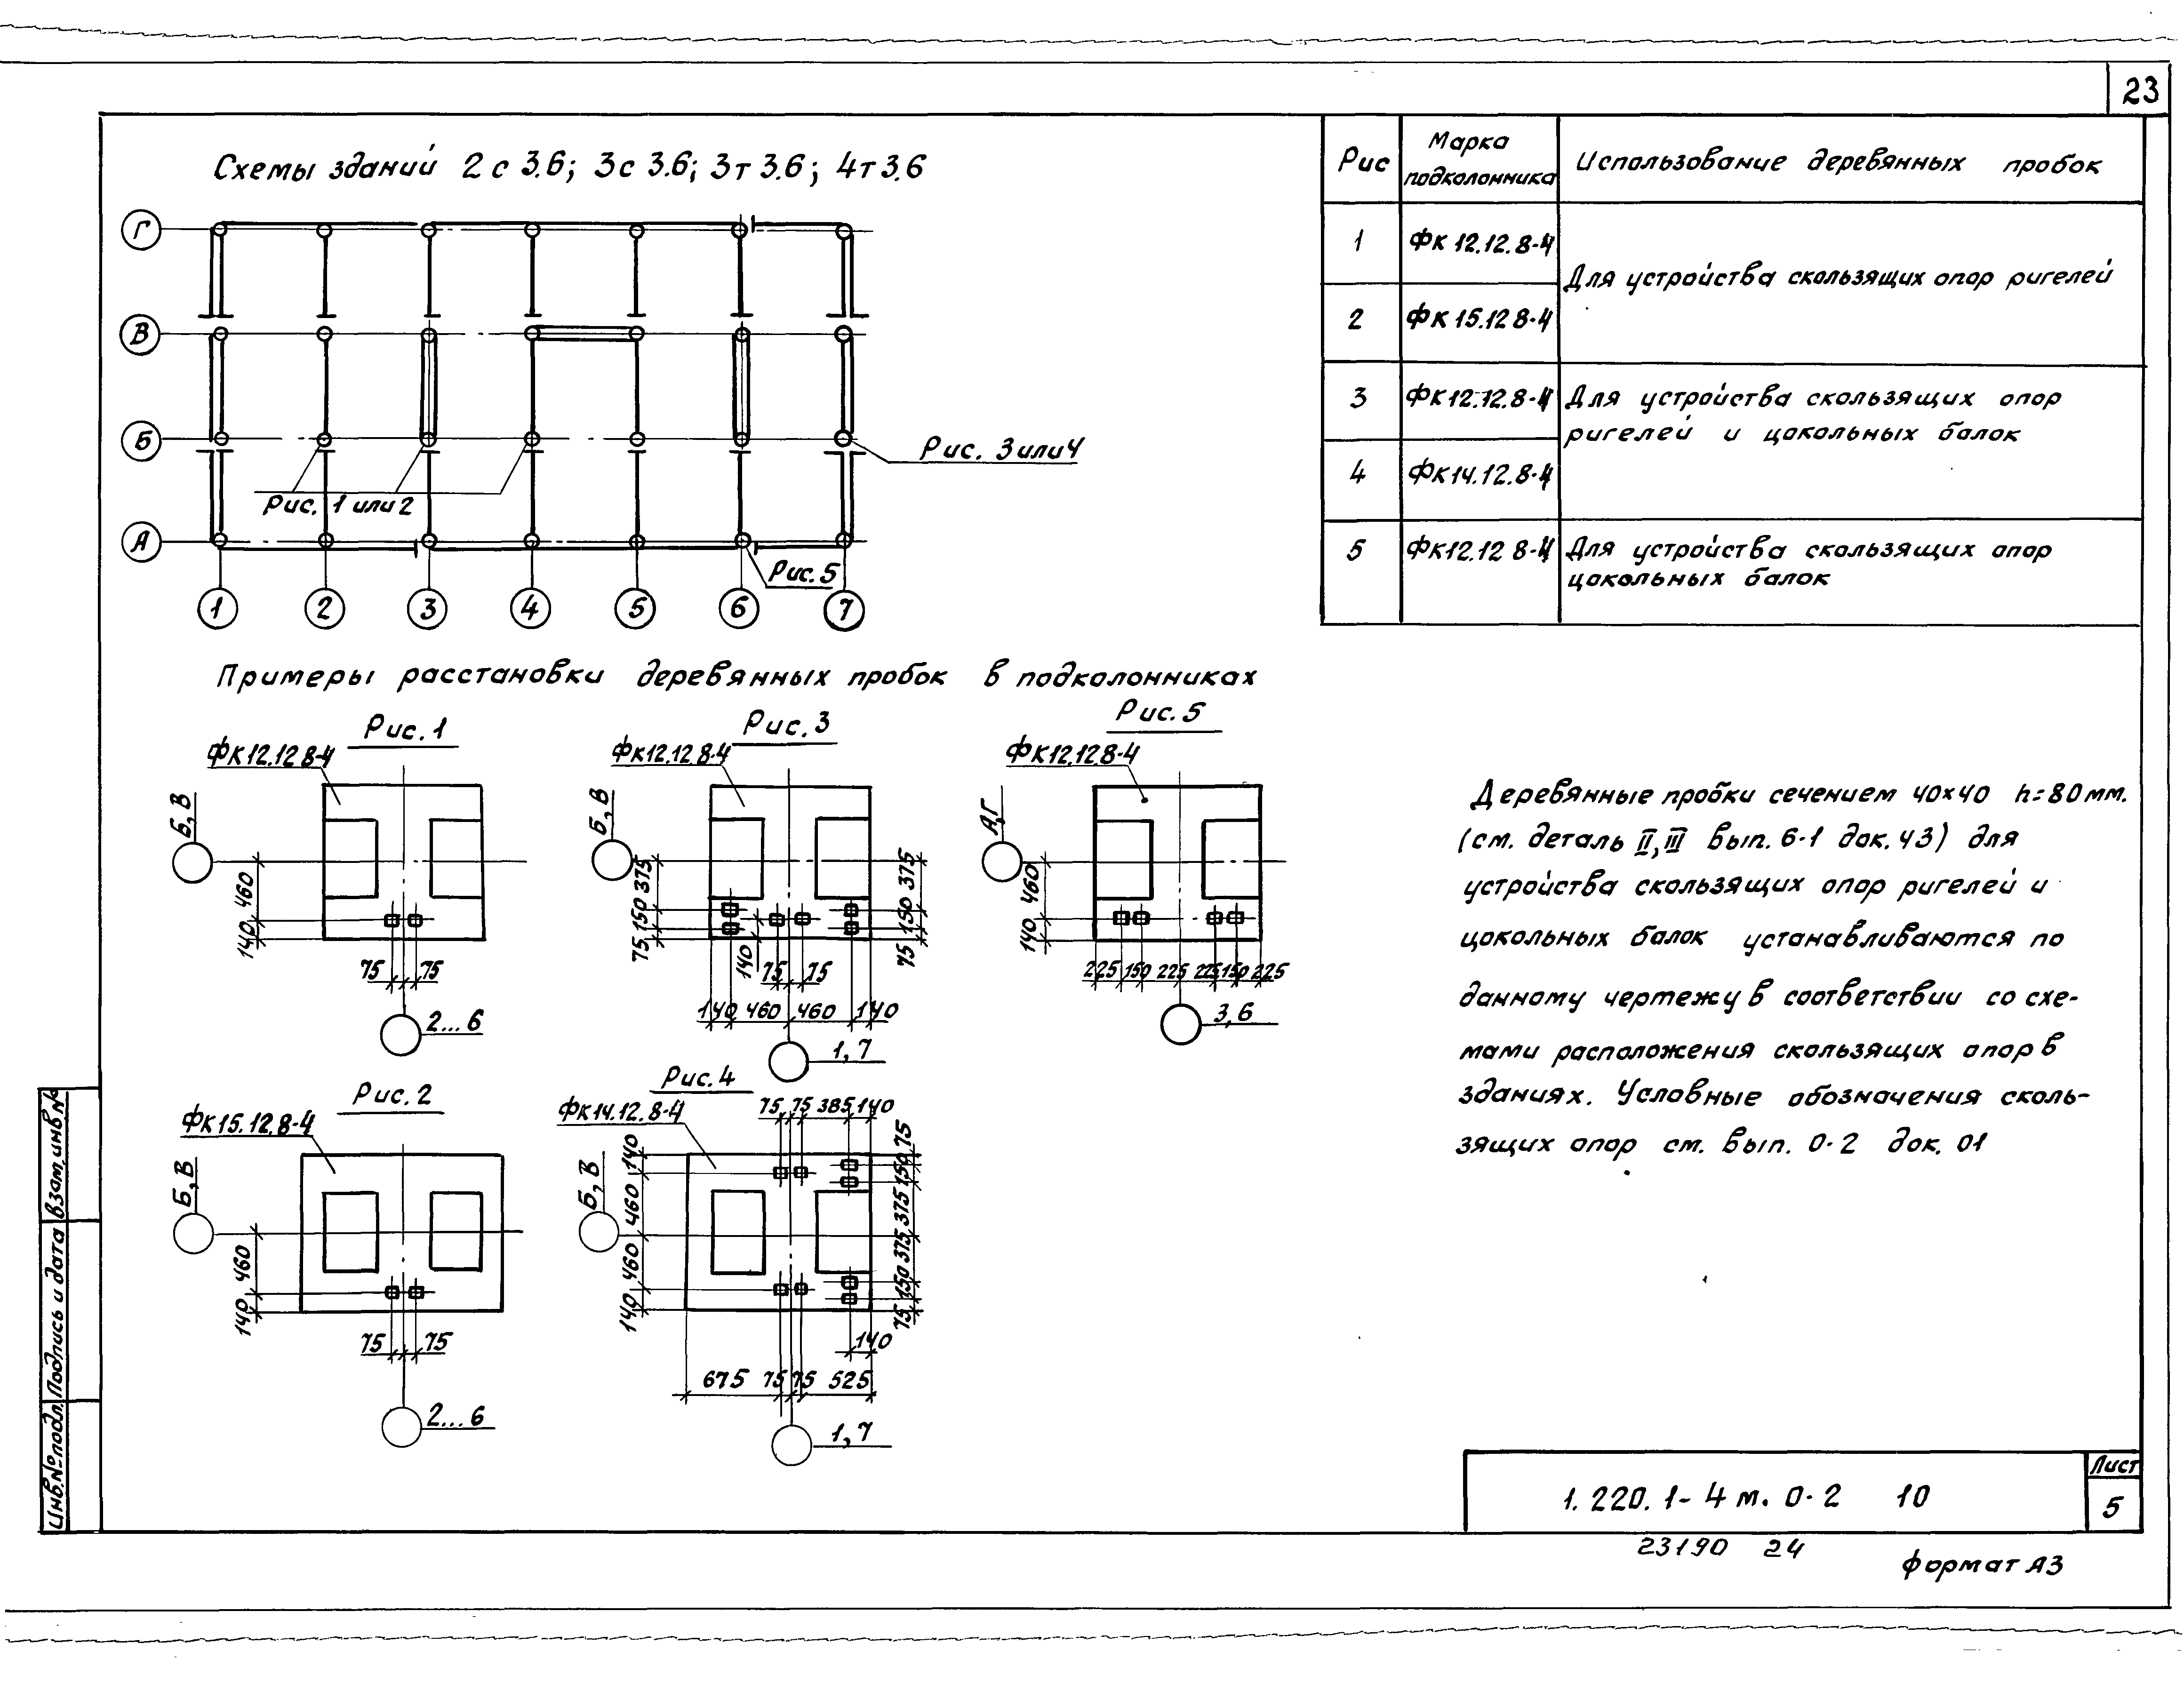 23
Схемы зданий 2с 3.6; 3с 3.6; 3т 3.6; 4т 3.6
Г
В
Б
А
Рис. 3 или 4
Рис. 1 или 2
Рис. 5
1 2 3 4 5 6 7
Рис Марка подколонника Использование деревянных пробок
1 ФК 12.12.8-4
Для устройства скользящих опор ригелей
2 ФК 15.12 8-4
3 ФК 12.12.8-4 Для устройства скользящих опор
ригелей и цокольных балок
4 ФК 14.12.8-4
5 ФК12.12 8-4 Для устройства скользящих опор
цокольных балок
Примеры расстановки деревянных пробок в подколонниках
Рис. 1
ФК12.12 8-4
Б, В
460
140
75 75
2...6
Рис. 3
ФК12.12.8-4
Б, В
375
150
75
140
375
150
75
75 75
140 460 460 140
1, 7
Рис. 5
ФК12.12.8-4
А, Г
460
140
225 150 225 225 150 225
3, 6
Рис. 2
ФК15.12.8-4
Б, В
460
140
75 75
2...6
Рис. 4
ФК14.12.8-4
Б, В
75 75 385 140
140
460
460
140
75
150
375
375
150
75
140
675 75 75 525
1, 7
Деревянные пробки сечением 40×40 h=80мм.
(см. деталь II, III вып. 6-1 док. 43) для
устройства скользящих опор ригелей и
цокольных балок устанавливаются по
данному чертежу в соответствии со схе-
мами расположения скользящих опор в
зданиях. Условные обозначения сколь-
зящих опор см. вып. 0-2 док. 01
Инв.№подл. Подпись и дата Взам.инв.№
1.220.1-4 м. 0-2 10
Лист
5
23190 24
формат А3